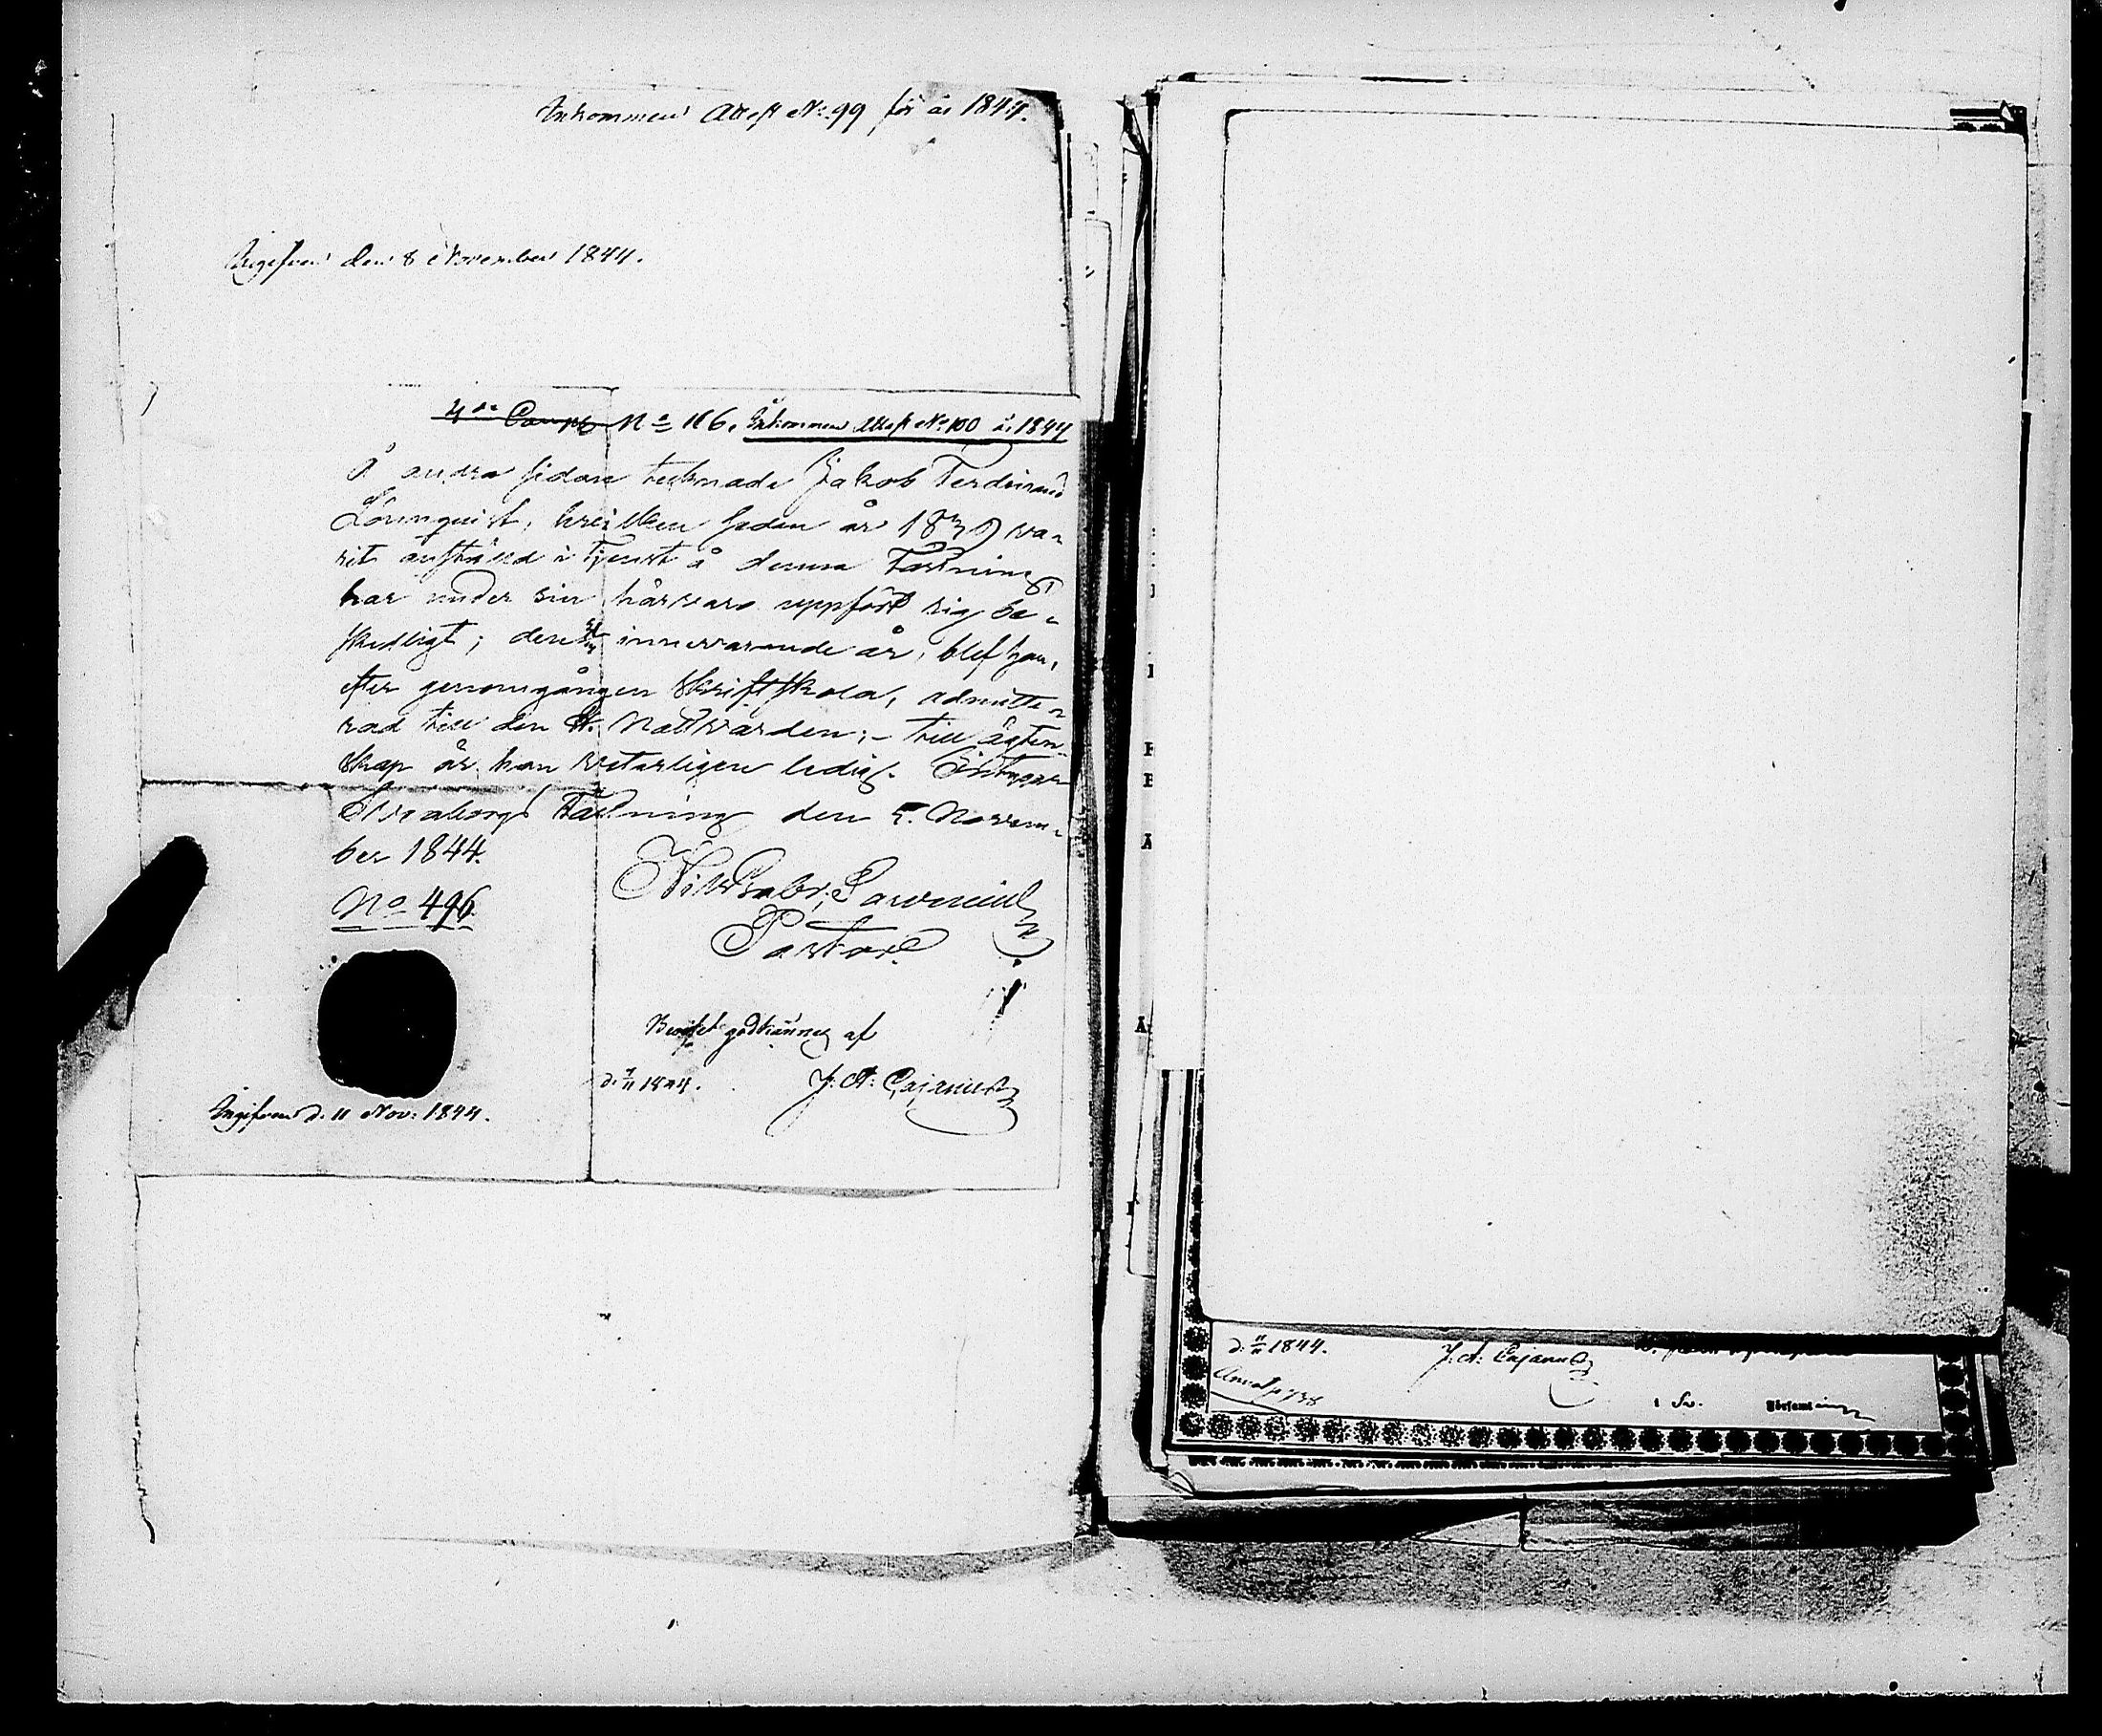 Inkommen Attest No. 99 för år 1844.
Ingifven den 8 November 1844.
4de Comp. No 116. Inkommen Attest No. 100 år 1844
Å andra sidan tecknade Jakob Ferdinand
Lönnquist, hvilken sedan år 1839 va-
rit anställd i tjenst å denna Fästning
har under sin härvaro uppfört sig be-
skedligt; den innevarande år, blef han,
efter genomgången Skriftskola, admitte-
rad till den H. Nattvarden; - till ägten-
skap är han vetterligen ledig.
Sveaborgs Fästning den 5. Novem-
ber 1844.
No 496.
Pastor.
Beviset godkännes af
d. 7/11 1844. J. A: Cajanus
Ingifven d. 11 Nov: 1844.
d. 11/11 1844. J. A: Cajanus
i Sv. Församling